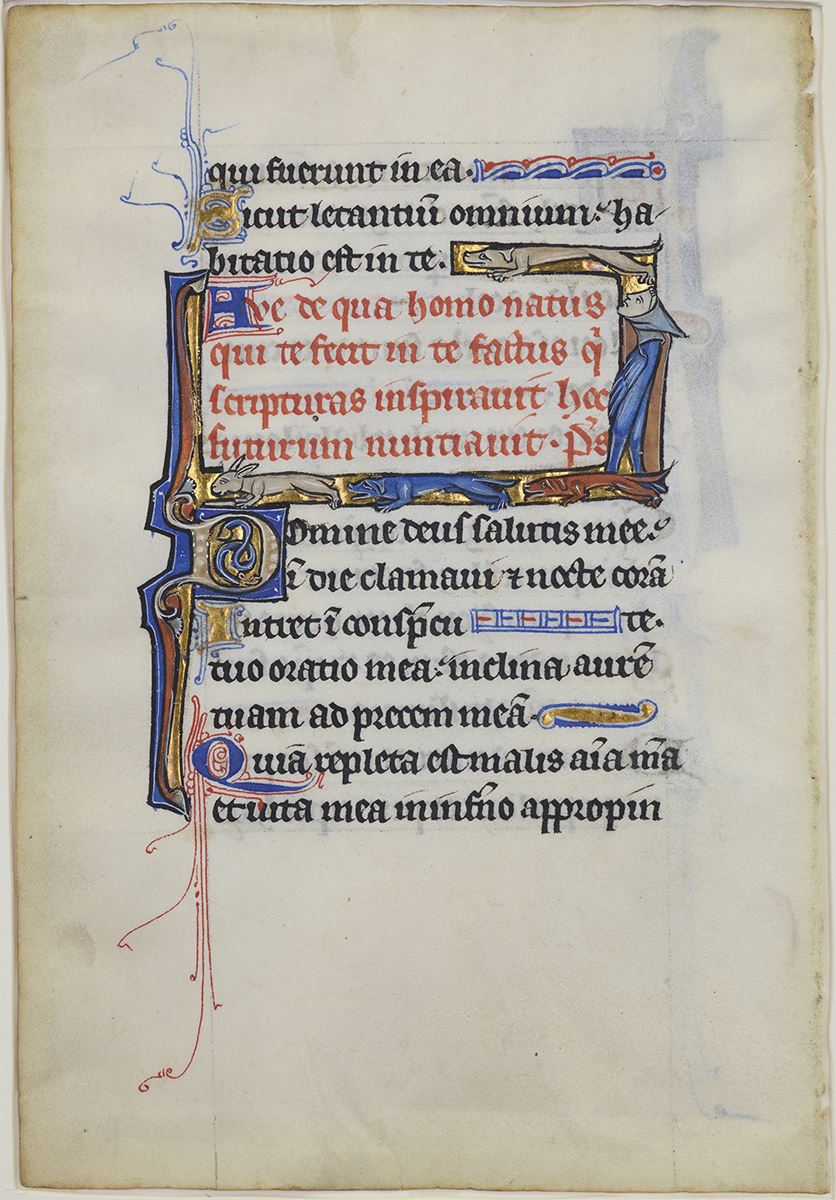 qui fuerunt in ea.
Sicut letantiū omnium: ha-
bitatio est in te.
Ave de qua homo natus
qui te fecit in te factus q̄
scripturas inspiravit hoc
futurum nuntiavit. p̄s
Domine deus salutis mee:
ī die clamavi ⁊ nocte corā
Intret ī consp̄cu te.
tuo oratio mea: inclina aurē
tuam ad precem meā.
Quiā repleta est malis aīa m̄a
et vita mea in inf̄no appropin